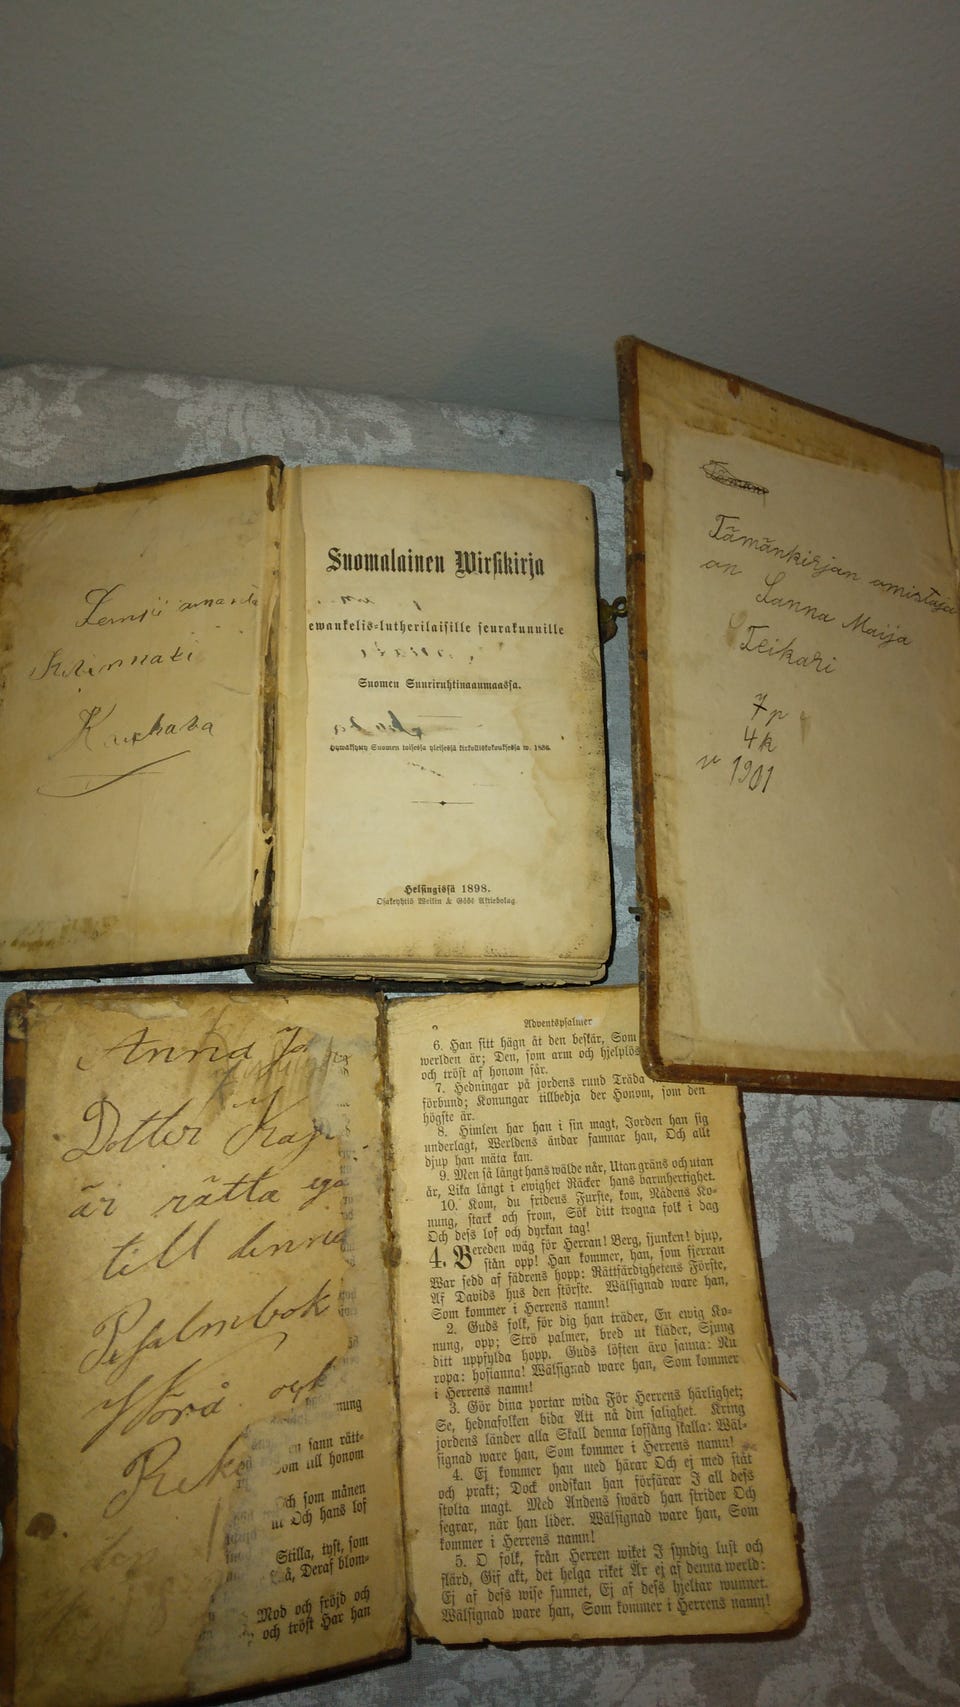 Suomalainen Wirsikirja
ewankelis-lutherilaisille seurakunnille
Suomen Suuriruhtinaanmaassa.
Hywäksytty Suomen toisessa yleisessä kirkolliskokouksessa w. 1886.
Helsingissä 1898.
Osakeyhtiö Weilin & Göös Aktiebolag
Tämänkirjan omistaja
on Sanna Maija
Teikari
7 p
4 k
v 1901
Anna
Dotter
är rätta
till denna
Psalmbok
och
Adventspsalmer
6. Han sitt hägn åt den beskär, Som
werlden är; Den, som arm och hjelplös
och tröst af honom får.
7. Hedningar på jordens rund Träda
förbund; Konungar tillbedja der Honom, som den
högste är.
8. Himlen har han i sin magt, Jorden han sig
underlagt, Werldens ändar famnar han, Och allt
djup han mäta kan.
9. Men så långt hans wälde når, Utan gräns och utan
år, Lika långt i ewighet Räcker hans barmhertighet.
10. Kom, du fridens Furste, kom, Nådens Ko-
nung, stark och from, Sök ditt trogna folk i dag
Och dess lof och dyrkan tag!
4. Bereden wäg för Herran! Berg, sjunken! djup,
stån opp! Han kommer, han, som fjerran
War sedd af fädrens hopp: Rättfärdighetens Förste,
Af Davids hus den störste. Wälsignad ware han,
Som kommer i Herrens namn!
2. Guds folk, för dig han träder, En ewig Ko-
nung, opp; Strö palmer, bred ut kläder, Sjung
ditt uppfylda hopp. Guds löften äro sanna: Nu
ropa: hosianna! Wälsignad ware han, Som kommer
i Herrens namn!
3. Gör dina portar wida För Herrens härlighet;
Se, hednafolken bida Att nå din salighet. Kring
jordens länder alla Skall denna lofsång skalla: Wäl-
signad ware han, Som kommer i Herrens namn!
4. Ej kommer han med härar Och ej med ståt
och prakt; Dock ondskan han förfärar I all dess
stolta magt. Med Andens swärd han strider Och
segrar, när han lider. Wälsignad ware han, Som
kommer i Herrens namn!
5. O folk, från Herren wiket I syndig lust och
flärd, Gif akt, det helga riket Är ej af denna werld:
Ej af dess wise funnet, Ej af dess hjeltar wunnet.
Wälsignad ware han, Som kommer i Herrens namn!
nung
en sann rätt-
som till honom
Och som månen
Och hans lof
Stilla, tyst, som
Deraf blom-
Mod och fröjd och
och tröst Har han